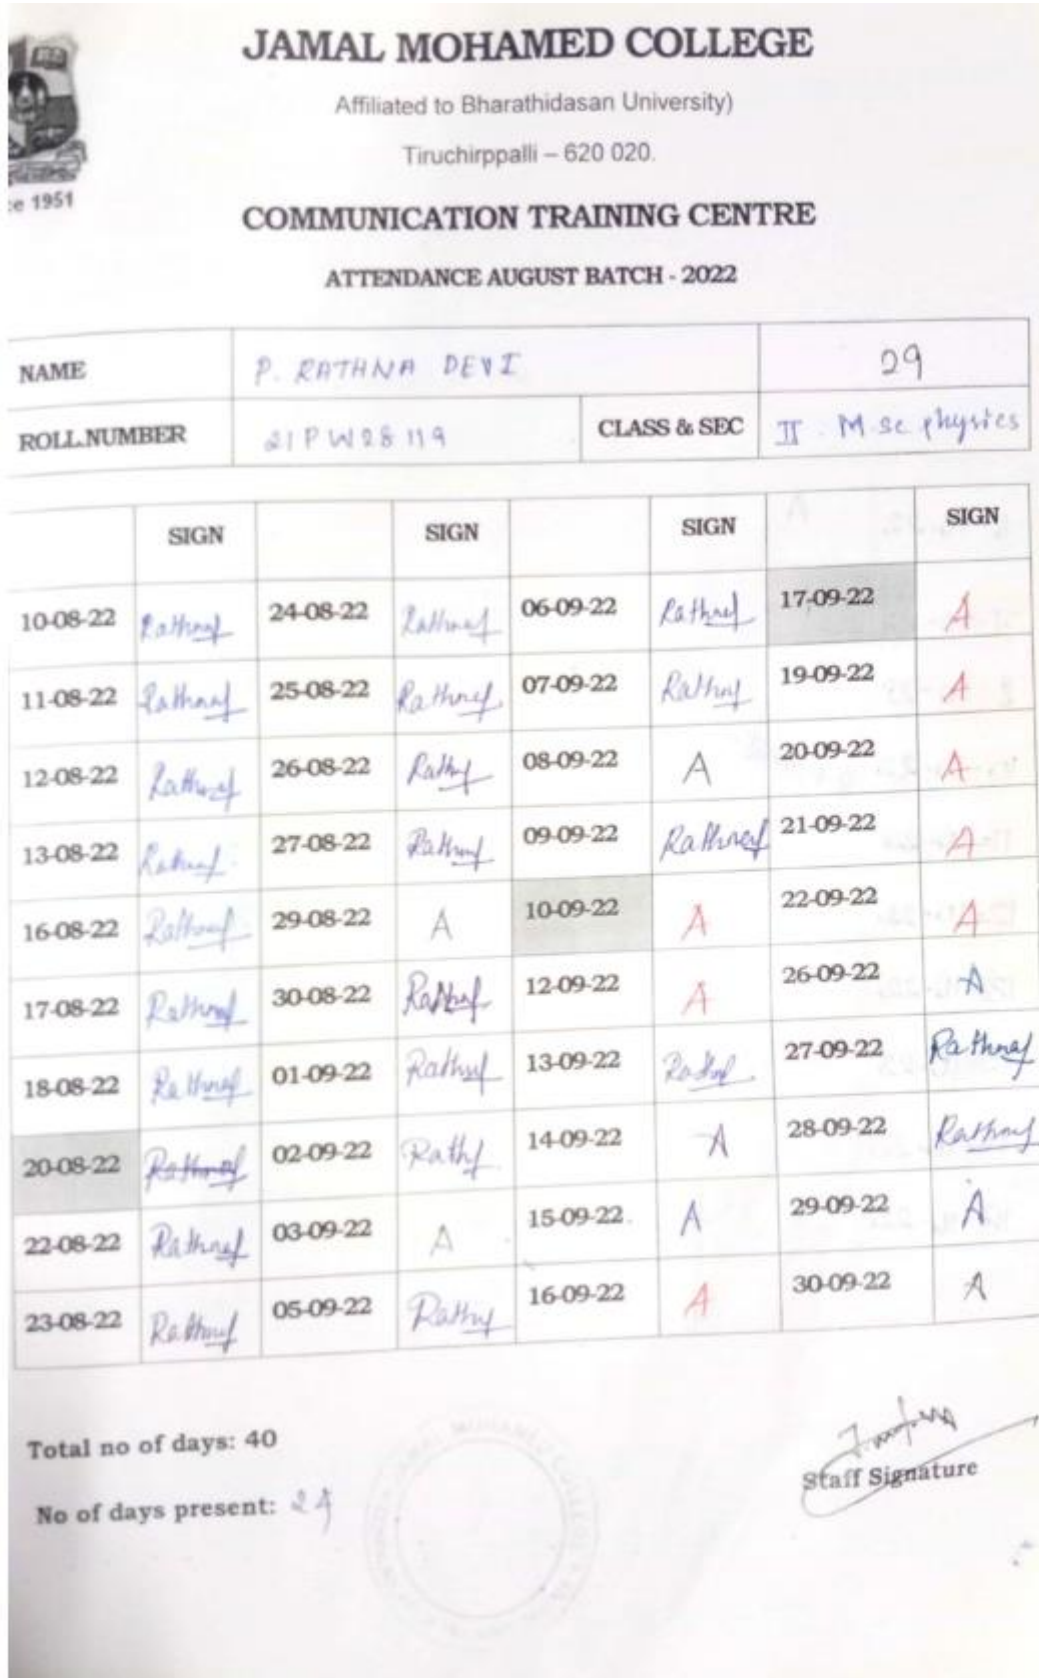 JAMAL MOHAMED COLLEGE
Affiliated to Bharathidasan University)
Tiruchirppalli – 620 020.
ce 1951
COMMUNICATION TRAINING CENTRE
ATTENDANCE AUGUST BATCH - 2022
NAME P. RATHNA DEVI 29
ROLL.NUMBER 21PW28119 CLASS & SEC II M.Sc physics
SIGN SIGN SIGN SIGN
10-08-22 Rathna 24-08-22 Rathna 06-09-22 Rathna 17-09-22 A
11-08-22 Rathna 25-08-22 Rathna 07-09-22 Rathna 19-09-22 A
12-08-22 Rathna 26-08-22 Rathna 08-09-22 A 20-09-22 A
13-08-22 Rathna 27-08-22 Rathna 09-09-22 Rathna 21-09-22 A
16-08-22 Rathna 29-08-22 A 10-09-22 A 22-09-22 A
17-08-22 Rathna 30-08-22 Rathna 12-09-22 A 26-09-22 A
18-08-22 Rathna 01-09-22 Rathna 13-09-22 Rathna 27-09-22 Rathna
20-08-22 Rathna 02-09-22 Rathna 14-09-22 A 28-09-22 Rathna
22-08-22 Rathna 03-09-22 A 15-09-22 A 29-09-22 A
23-08-22 Rathna 05-09-22 Rathna 16-09-22 A 30-09-22 A
Total no of days: 40
Staff Signature
No of days present: 24